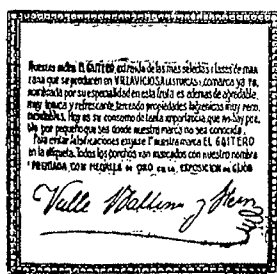 Nuestra sidra EL GAITERO, extraida de las más selectas clases de man
zana que se producen en VILLAVICIOSA (ASTURIAS), comarca ya re
nombrada por su especialidad en esta fruta es ademas de agradable,
muy tonica y refrescante, teniendo propiedades higienicas muy reco
mendables. Hoy es su consumo de tanta importancia que no hay pue
blo por pequeño que sea donde nuestra marca no sea conocida.
Para evitar falsificaciones exijase nuestra marca EL GAITERO
en la etiqueta. Todos los corchos van marcados con nuestro nombre
PREMIADA CON MEDALLA de ORO en la EXPOSICION de GIJON
Valle Ballina y Fern